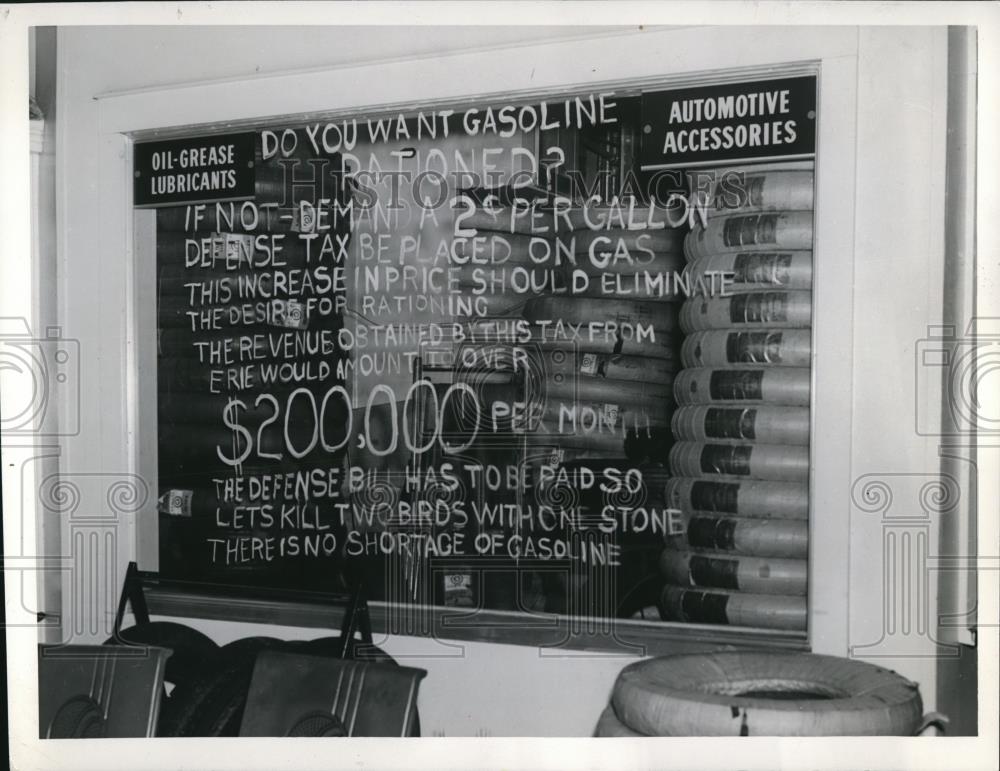 OIL-GREASE
LUBRICANTS
AUTOMOTIVE
ACCESSORIES
DO YOU WANT GASOLINE
RATIONED?
IF NOT-DEMANT A 2¢ PER GALLON
DEFENSE TAX BE PLACED ON GAS
THIS INCREASE IN PRICE SHOULD ELIMINATE
THE DESIRE FOR RATIONING
THE REVENUE OBTAINED BY THIS TAX FROM
ERIE WOULD AMOUNT TO OVER
$200,000 PER MONTH
THE DEFENSE BILL HAS TO BE PAID SO
LETS KILL TWO BIRDS WITH ONE STONE
THERE IS NO SHORTAGE OF GASOLINE
HISTORIC IMAGES